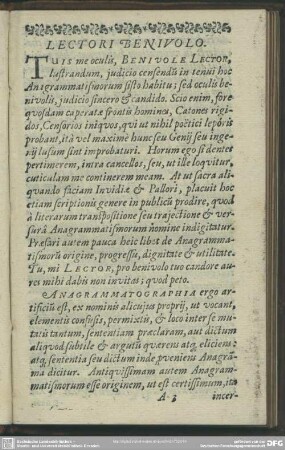 LECTORI BENIVOLO.
TUIS me oculis, BENIVOLE LECTOR,
lustrandum, judicio censendũ in tenui hoc
Anagrammatismorum sisto habitu; sed oculis be-
nivolis, judicio sincero & candido. Scio enim, fore
qvosdam caperatæ frontis homines, Catones rigi-
dos, Censorios iniqvos, qvi ut nihil poëtici leporis
probant, ità vel maximè hunc seu Genij seu inge-
nij lusum sint improbaturi. Horum ego si dentes
pertimerem, intra cancellos, seu, ut ille loqvitur,
cuticulam me continerem meam. At ut sacra ali-
qvando faciam Invidiæ & Pallori, placuit hoc
etiam scriptionis genere in publicũ prodire, qvod
à literarum transpositione seu trajectione & ver-
surâ Anagrammatismorum nomine indigitatur.
Præfari autem pauca heic libet de Anagramma-
tismorũ origine, progressu, dignitate & utilitate.
Tu, mi LECTOR, pro benivolo tuo candore au-
res mihi dabis non invitas; qvod peto.
ANAGRAMMATOGRAPHIA ergo ar-
tificiũ est, ex nominis alicujus proprij, ut vocant,
elementis confusis, permixtis, & loco inter se mu-
tatis tantum, sententiam præclaram, aut dictum
aliqvod subtile & argutũ qværens atq; eliciens:
atq; sententia seu dictum inde proveniens Anagrã-
ma dicitur. Antiqvissimam autem Anagram-
matismorum esse originem, ut est certissimum, ita
A 3 incer-